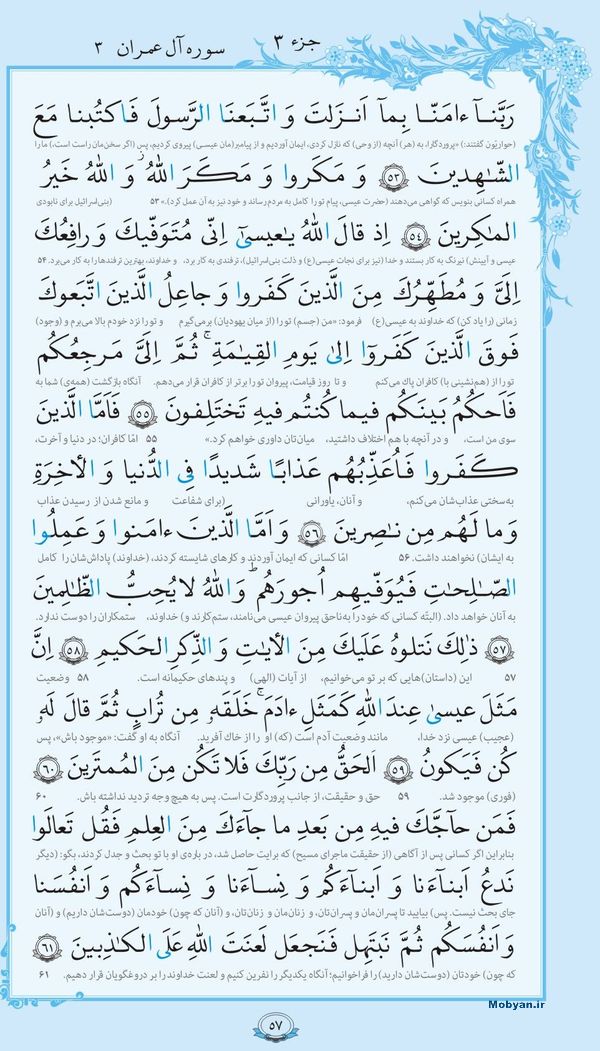 جزء ۳
سوره آل عمران ۳
رَبَّنآ ءامَنّا بِمآ اَنزَلتَ وَ اتَّبَعنَا الرَّسولَ فَاكتُبنا مَعَ
(حواریّون گفتند:) «پروردگارا، به (هر) آنچه (از وحی) که نازل کردی، ایمان آوردیم و از پیامبر(مان عیسی) پیروی کردیم، پس (اگر سخن‌مان راست است،) ما را
الشّٰهِدينَ ﴿۵۳﴾ وَ مَكَروا وَ مَكَرَ اللهُ وَ اللهُ خَيرُ
همراه کسانی بنویس که گواهی می‌دهند (حضرت عیسی، پیام تو را کامل به مردم رساند و خود نیز به آن عمل کرد.)» ۵۳ (بنی‌اسرائیل برای نابودی
المٰكِرينَ ﴿۵۴﴾ اِذ قالَ اللهُ يٰعيسىٰٓ اِنّى مُتَوَفّيكَ وَ رافِعُكَ
عیسی و آیینش) نیرنگ به کار بستند و خدا (نیز برای نجات عیسی(ع) و ذلت بنی‌اسرائیل)، ترفندی به کار برد، و خداوند، بهترین ترفندها را به کار می‌برد. ۵۴
اِلَىَّ وَ مُطَهِّرُكَ مِنَ الَّذينَ كَفَروا وَ جاعِلُ الَّذينَ اتَّبَعوكَ
زمانی (را یاد کن) که خداوند به عیسی(ع) فرمود: «من (جسم) تو را (از میان یهودیان) برمی‌گیرم و تو را نزد خودم بالا می‌برم و (وجود)
فَوقَ الَّذينَ كَفَروٓا اِلىٰ يَومِ القِيٰمَةِ ۚ ثُمَّ اِلَىَّ مَرجِعُكُم
تو را از (هم‌نشینی با) کافران پاک می‌کنم و تا روز قیامت، پیروان تو را برتر از کافران قرار می‌دهم. آنگاه بازگشت (همه‌ی) شما به
فَاَحكُمُ بَينَكُم فيما كُنتُم فيهِ تَختَلِفونَ ﴿۵۵﴾ فَاَمَّا الَّذينَ
سوی من است، و در آنچه با هم اختلاف داشتید، میان‌تان داوری خواهم کرد.» ۵۵ امّا کافران؛ در دنیا و آخرت،
كَفَروا فَاُعَذِّبُهُم عَذابًا شَديدًا فِى الدُّنيا وَ الأٰخِرَةِ
به‌سختی عذاب‌شان می‌کنم، و آنان، یاورانی (برای شفاعت و مانع شدن از رسیدن عذاب
وَ ما لَهُم مِن نٰصِرينَ ﴿۵۶﴾ وَ اَمَّا الَّذينَ ءامَنوا وَ عَمِلُوا
به ایشان) نخواهند داشت. ۵۶ امّا کسانی که ایمان آوردند و کارهای شایسته کردند، (خداوند) پاداش‌شان را کامل
الصّٰلِحٰتِ فَيُوَفّيهِم اُجورَهُم ۗ وَاللهُ لا يُحِبُّ الظّٰلِمينَ
به آنان خواهد داد. (البتّه کسانی که خود را به‌ناحق پیروان عیسی می‌نامند، ستم‌کارند و) خداوند، ستمکاران را دوست ندارد.
﴿۵۷﴾ ذٰلِكَ نَتلوهُ عَلَيكَ مِنَ الأٰيٰتِ وَ الذِّكرِ الحَكيمِ ﴿۵۸﴾ اِنَّ
۵۷ این (داستان)هایی که بر تو می‌خوانیم، از آیات (الهی) و پندهای حکیمانه است. ۵۸ وضعیت
مَثَلَ عيسىٰ عِندَ اللهِ كَمَثَلِ ءادَمَ ۖ خَلَقَهٗ مِن تُرابٍ ثُمَّ قالَ لَهٗ
(عجیب) عیسی نزد خدا، مانند وضعیت آدم است (که) او را از خاک آفرید. آنگاه به او گفت: «موجود باش»، پس
كُن فَيَكونُ ﴿۵۹﴾ اَلحَقُّ مِن رَبِّكَ فَلا تَكُن مِنَ المُمتَرينَ ﴿۶۰﴾
(فوری) موجود شد. ۵۹ حق و حقیقت، از جانب پروردگارت است. پس به هیچ وجه تردید نداشته باش. ۶۰
فَمَن حآجَّكَ فيهِ مِن بَعدِ ما جآءَكَ مِنَ العِلمِ فَقُل تَعالَوا
بنابراین اگر کسانی پس از آگاهی (از حقیقت ماجرای مسیح) که برایت حاصل شد، درباره‌ی او با تو بحث و جدل کردند، بگو: (دیگر
نَدعُ اَبنآءَنا وَ اَبنآءَكُم وَ نِسآءَنا وَ نِسآءَكُم وَ اَنفُسَنا
جای بحث نیست. پس) بیایید تا پسران‌مان و پسران‌تان، و زنان‌مان و زنان‌تان، و (آنان که چون) خودمان (دوست‌شان داریم) و (آنان
وَ اَنفُسَكُم ثُمَّ نَبتَهِل فَنَجعَل لَعنَتَ اللهِ عَلَى الكٰذِبينَ ﴿۶۱﴾
که چون) خودتان (دوست‌شان دارید) را فراخوانیم؛ آنگاه یکدیگر را نفرین کنیم و لعنت خداوند را بر دروغگویان قرار دهیم. ۶۱
Mobyan.ir
۵۷